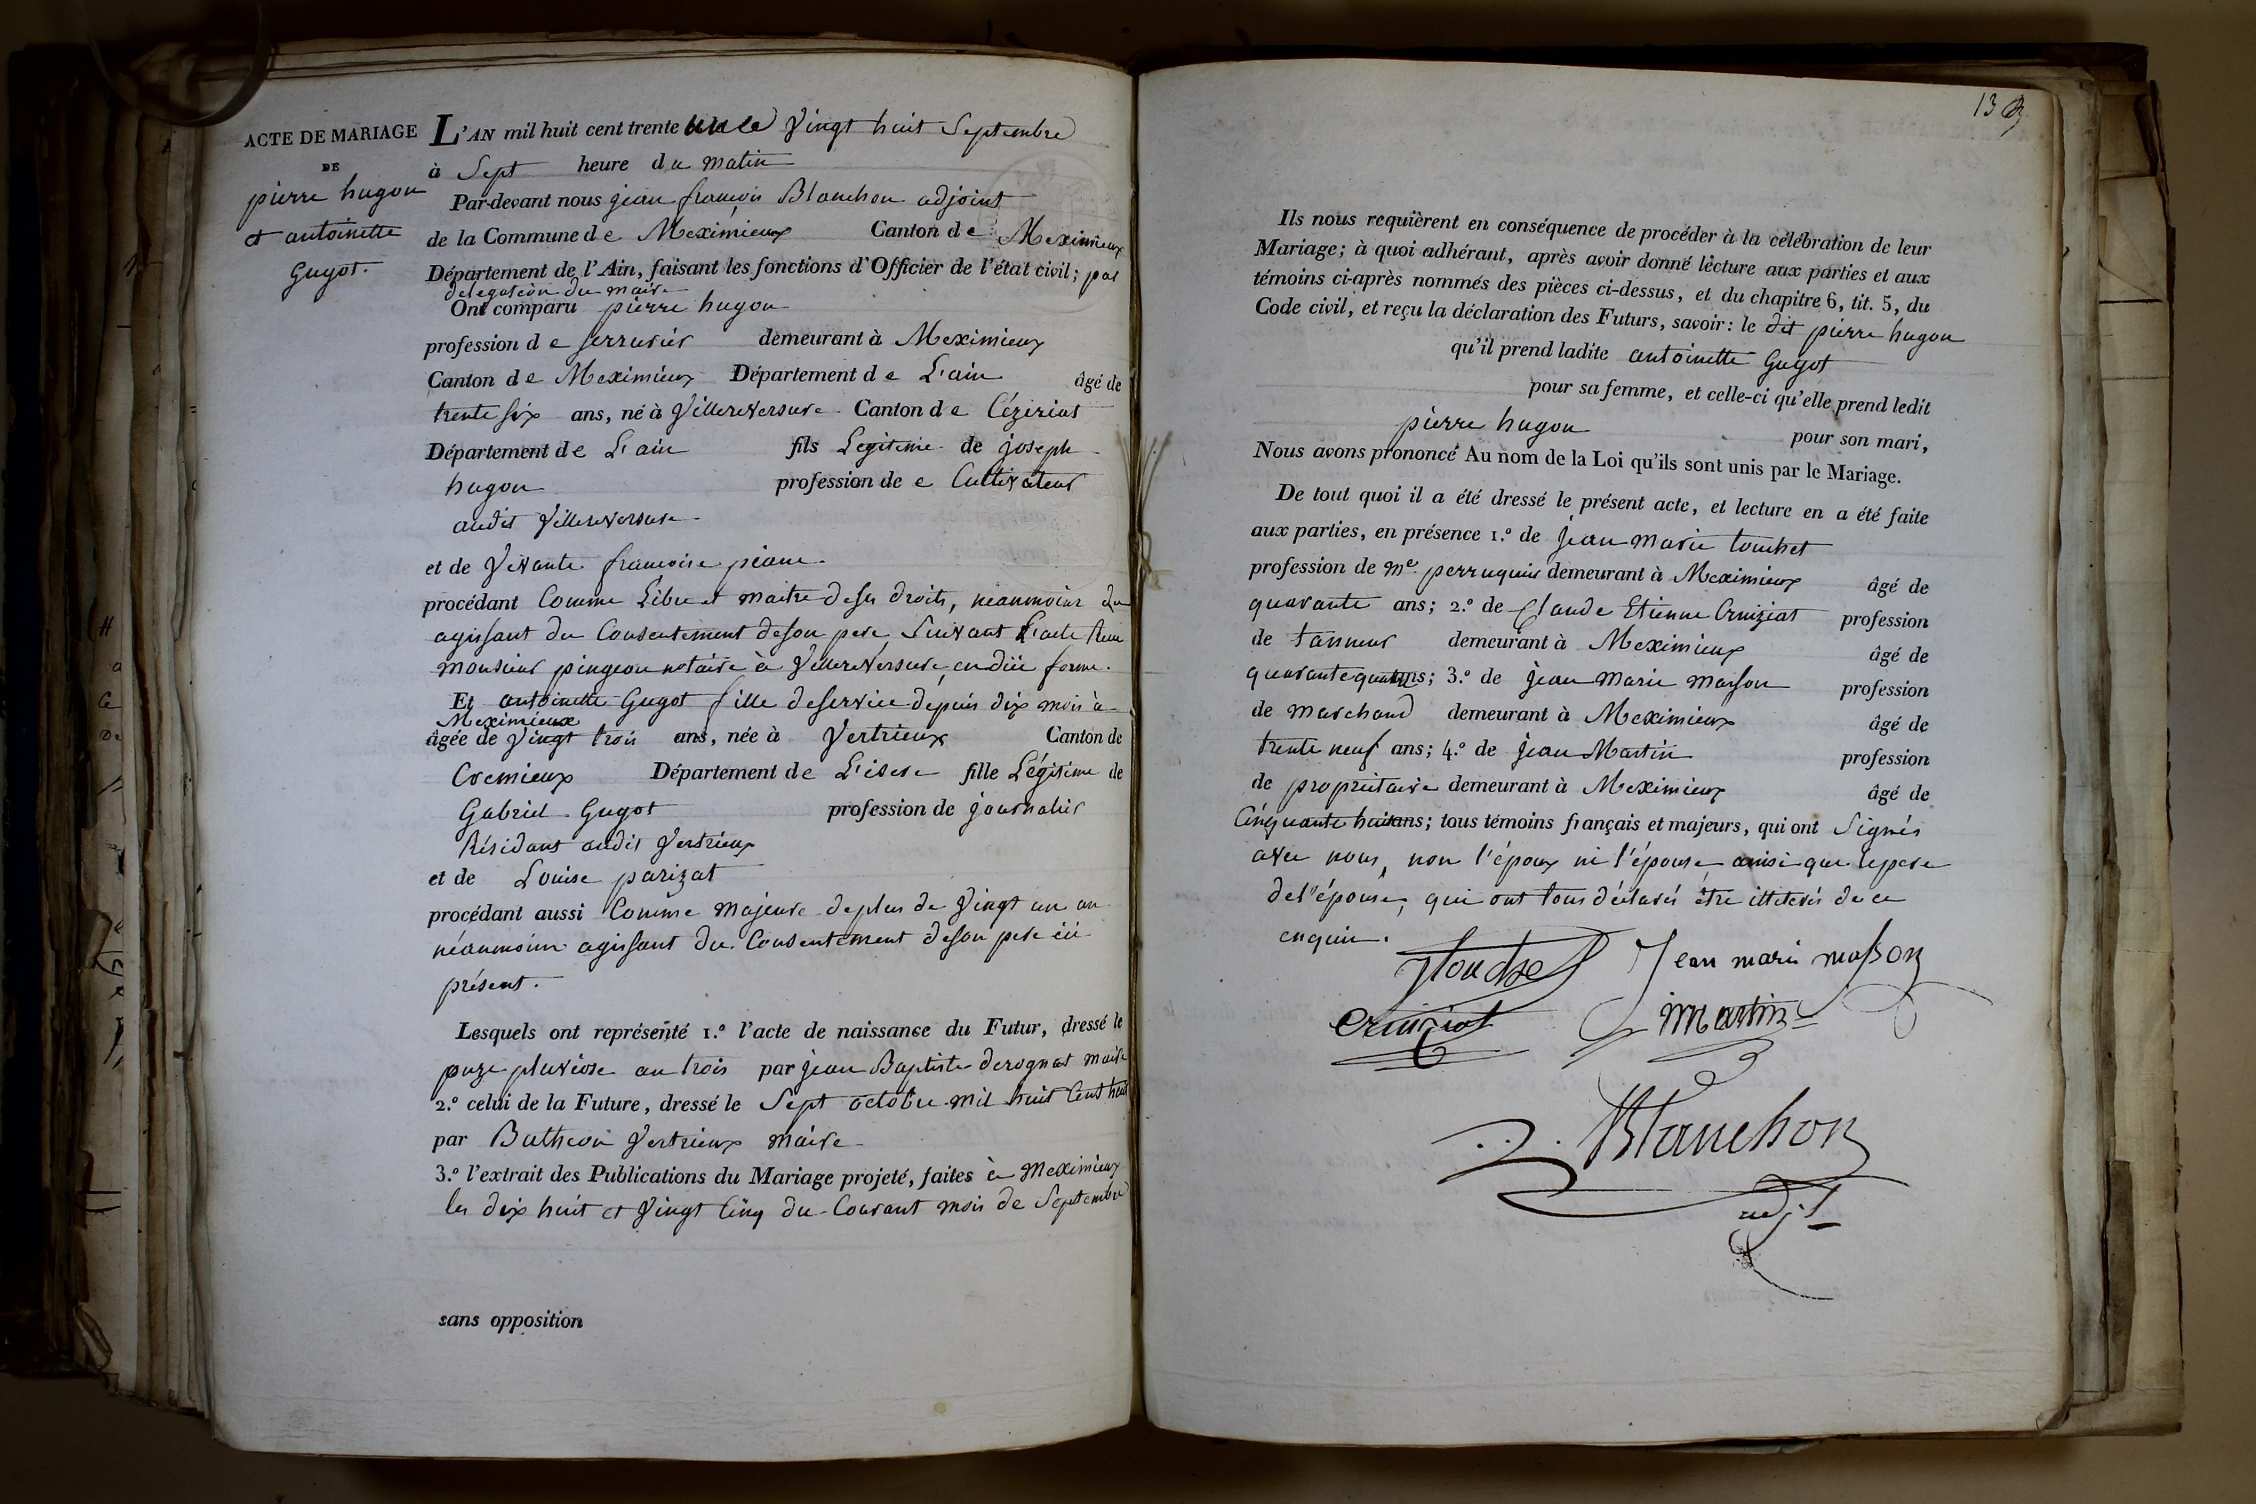 ACTE DE MARIAGE
DE
pierre hugon
et antoinette
Guyot.
L'AN mil huit cent trente un le Vingt huit Septembre
à Sept heure du matin
Par-devant nous jean françois Blanchon adjoint
de la Commune de Meximieux Canton de Meximieux
Département de l'Ain, faisant les fonctions d'Officier de l'état civil; par
delegation du maire
Ont comparu pierre hugon
profession de serrurier demeurant à Meximieux
Canton de Meximieux Département de L'ain âgé de
trente six ans, né à Villereversure Canton de Cézeriat
Département de L'ain fils Legitime de joseph
hugon profession de e Cultivateur
audit Villereversure
et de Vivante francoise piane
procédant Comme Libre et maitre de ses droits, néanmoins
agissant du Consentement de son pere, Suivant L'acte Reçu
monsieur pingeon notaire à Villereversure, en düe forme.
Et antoinette Guyot fille de service depuis dix mois à
Meximieux
âgée de Vingt trois ans, née à Vertrieux Canton de
Cremieux Département de L'isere fille Légitime de
Gabriel Guyot profession de journalier
Résidant audit Vertrieux
et de Louise parizat
procédant aussi Comme majeure de plus de Vingt un an
néanmoins agissant du Consentement de son pere ici
présent.
Lesquels ont représenté 1.º l'acte de naissance du Futur, dressé le
onze pluviose an trois par jean Baptiste derognat maire
2.º celui de la Future, dressé le Sept octobre mil huit Cent huit
par Vertrieux maire
3.º l'extrait des Publications du Mariage projeté, faites à Meximieux
les dix huit et Vingt Cinq du Courant mois de Septembre
sans opposition
13
Ils nous requièrent en conséquence de procéder à la célébration de leur
Mariage; à quoi adhérant, après avoir donné lecture aux parties et aux
témoins ci-après nommés des pièces ci-dessus, et du chapitre 6, tit. 5, du
Code civil, et reçu la déclaration des Futurs, savoir: le dit pierre hugon
qu'il prend ladite antoinette Guyot
pour sa femme, et celle-ci qu'elle prend ledit
pierre hugon pour son mari,
Nous avons prononcé Au nom de la Loi qu'ils sont unis par le Mariage.
De tout quoi il a été dressé le présent acte, et lecture en a été faite
aux parties, en présence 1.º de jean marie touchet
profession de me perruquier demeurant à Meximieux âgé de
quarante ans; 2.º de Claude Etienne Cruiziat profession
de tanneur demeurant à Meximieux âgé de
quarante quatre ans; 3.º de jean marie masson profession
de marchand demeurant à Meximieux âgé de
trente neuf ans; 4.º de jean Martin profession
de propriétaire demeurant à Meximieux âgé de
Cinquante huit ans; tous témoins français et majeurs, qui ont Signés
avec nous, non l'époux ni l'épouse ainsi que le pere
de l'épouse, qui ont tous déclarés être illiterés de ce
enquis.
Jean marie masson
Cruiziat
Martin
Blanchon
adj.t